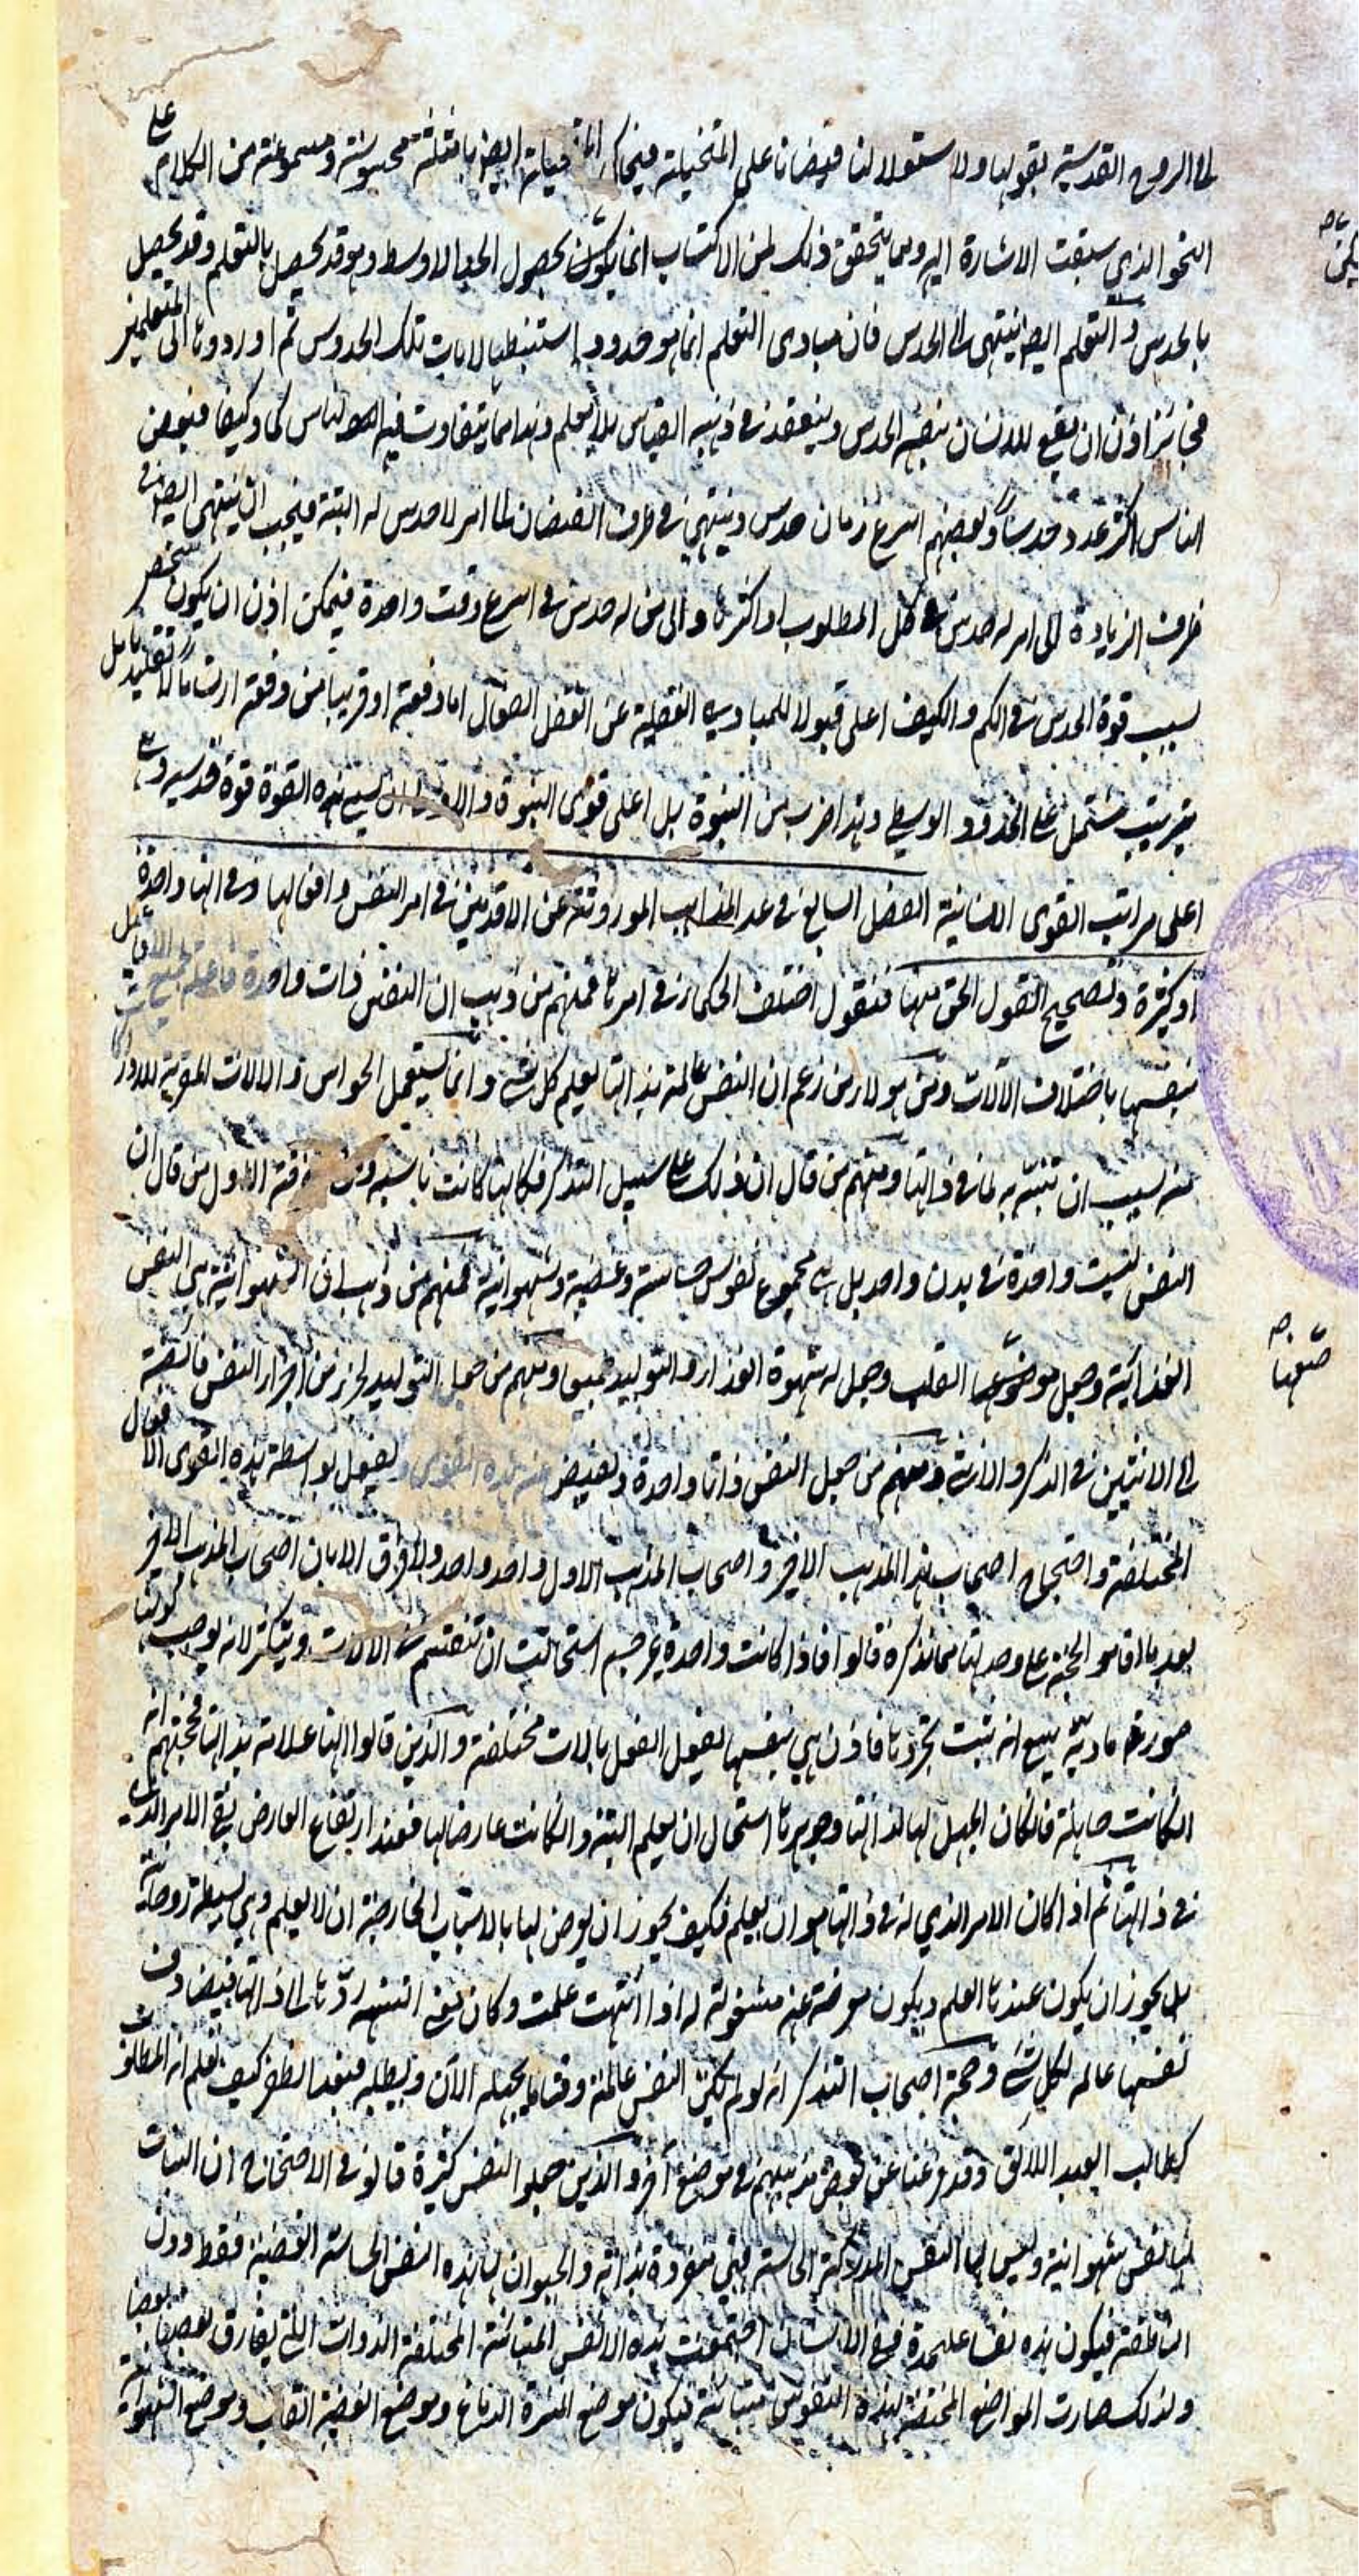 الى الروح القدسية بقولها ولا استيلا لنا فيضانا على المتخيلة فيحاكى المتخيلة ايضا بامثلة محسوسة ومسموعة من الكلام على
النحو الذي سبقت الاشارة اليه ومما يتحقق ذلك ان الاكتساب انما يكون بحصول الحد الاوسط وهو قد يحصل بالتعلم وقد يحصل
بالحدس والتعلم ايضا ينتهى الى الحدس فان مبادى التعلم انما هو حدود استنبطها ارباب تلك الحدوس ثم اوردوها الى المتعلمين
فجائز اذن ان يقع للانسان بنفسه الحدس وينعقد فى ذهنه القياس بلا معلم وهذا مما يتفاوت فيه الناس كما وكيفا فبعض
الناس اكثر عدد حدسا وبعضهم اسرع زمان حدس وينتهى فى طرف النقصان الى امر لا حدس له البتة فيجب ان ينتهى ايضا فى
طرف الزيادة الى امر له حدس فى كل المطلوب او اكثرها والى من له حدس فى اسرع وقت واحدة فيمكن اذن ان يكون شخص
بسبب قوة الحدس فى الكم والكيف اعلى قبولا للمبادى العقلية عن العقل الفعال اما دفعة او قريبا من دفعة ارتساما لا تقليديا بل
بترتيب مشتمل على الحدود الوسطى وهذا ضرب من النبوة بل اعلى قوى النبوة والاولى ان يسمى هذه القوة قوة قدسية وهى
اعلى مراتب القوى الانسانية الفصل السابع فى عد المذاهب الموروثة عن الاقدمين فى امر النفس وافعالها وفى انها واحدة
او كثيرة وتصحيح القول الحق منها فنقول اختلف الحكماء فى امرها فمنهم من ذهب ان النفس ذات واحدة فاعلة لجميع الافاعيل
بنفسها باختلاف الآلات ومن هولاء من زعم ان النفس عالمة بذاتها يعلم كل شئ وانما يستعمل الحواس والالات المقربة للمدركات
منه بسبب ان تتنبه به لما فى ذاتها ومنهم من قال ان ذلك على سبيل التذكر فكانها كانت ناسية ومن فرقة الاول من قال ان
النفس ليست واحدة فى بدن واحد بل هى مجموع نفوس حساسة وغضبية وشهوانية فمنهم من ذهب ان الشهوانية هى النفس
الغذائية وجعل موضعها القلب وجعل له شهوة الغذاء والتوليد جميعا ومنهم من جعل التوليد لجزء من اجزاء النفس فائضة
الى الانثيين فى الذكر والانثى ومنهم من جعل النفس ذاتا واحدة ويفيض عنه هذه القوى ويفعل بواسطة هذه القوى الافعال
المختلفة واحتجاج اصحاب هذا المذهب الاخر واصحاب المذهب الاول واحد واحد ولا فرق الا بان اصحاب المذهب الاخر
بعد ما اقاموا الحجة على وحدتها مما نذكره قالوا فاذا كانت واحدة غير جسم استحالت ان تنقسم فى الالات ويتكثر لانه يوجب كونها
صورة مادية مع انه ثبت تجردها فاذن هى بنفسها يفعل الفعل بالات مختلفة والذين قالوا انها علامة بذاتها فحجتهم انه
ان كانت جاهلة فان كان الجهل لها لذاتها وجوهرها استحال ان يعلم البتة وان كانت عارضا لها فعند ارتفاع العارض يبقى الامر الذى له
فى ذاتها ثم اذا كان الامر الذي له فى ذاتها هو ان يعلم فكيف يجوز ان يعرض لها بالاسباب الخارجة ان لا يعلم وهى بسيطة روحانية
بل يجوز ان يكون عندها العلم ويكون معرضة عنه مشغولة له اذا انتبهت علمت وكان معنى التنبيه ردها الى ذاتها فيصادف
نفسها عالمه لكل شئ وحجة اصحاب التذكر انه لو لم يكن النفس عالمة وقتا ما يجهله الآن ويطلبه فبعد الظفر كيف تعلم انه المطلوب
كطالب العبد الآبق وقد فرغنا عن نقض مذهبهم فى موضع آخر والذين جعلوا النفس كثيرة قالوا فى الاحتجاج ان النبات
لها نفس شهوانية وليس لها النفس المدركة الحاسة فهى منفردة بذاته والحيوان لها هذه النفس الحاسة الغضبية فقط دون
الناطقة فيكون هذه نفسا على حدة ففى الانسان اجتمعت هذه الانفس المتباينة المختلفة الذوات التى يفارق بعضها بعضا
ولذلك صارت المواضع المختصة بهذه النفوس متباينة فيكون موضع المميزة الدماغ وموضع الغضبية القلب وموضع الشهوانية